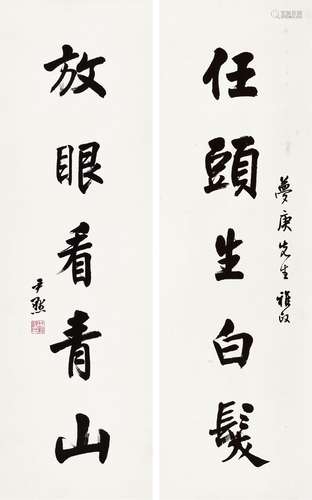 任頭生白髮
夢庚先生雅正
放眼看青山
尹默